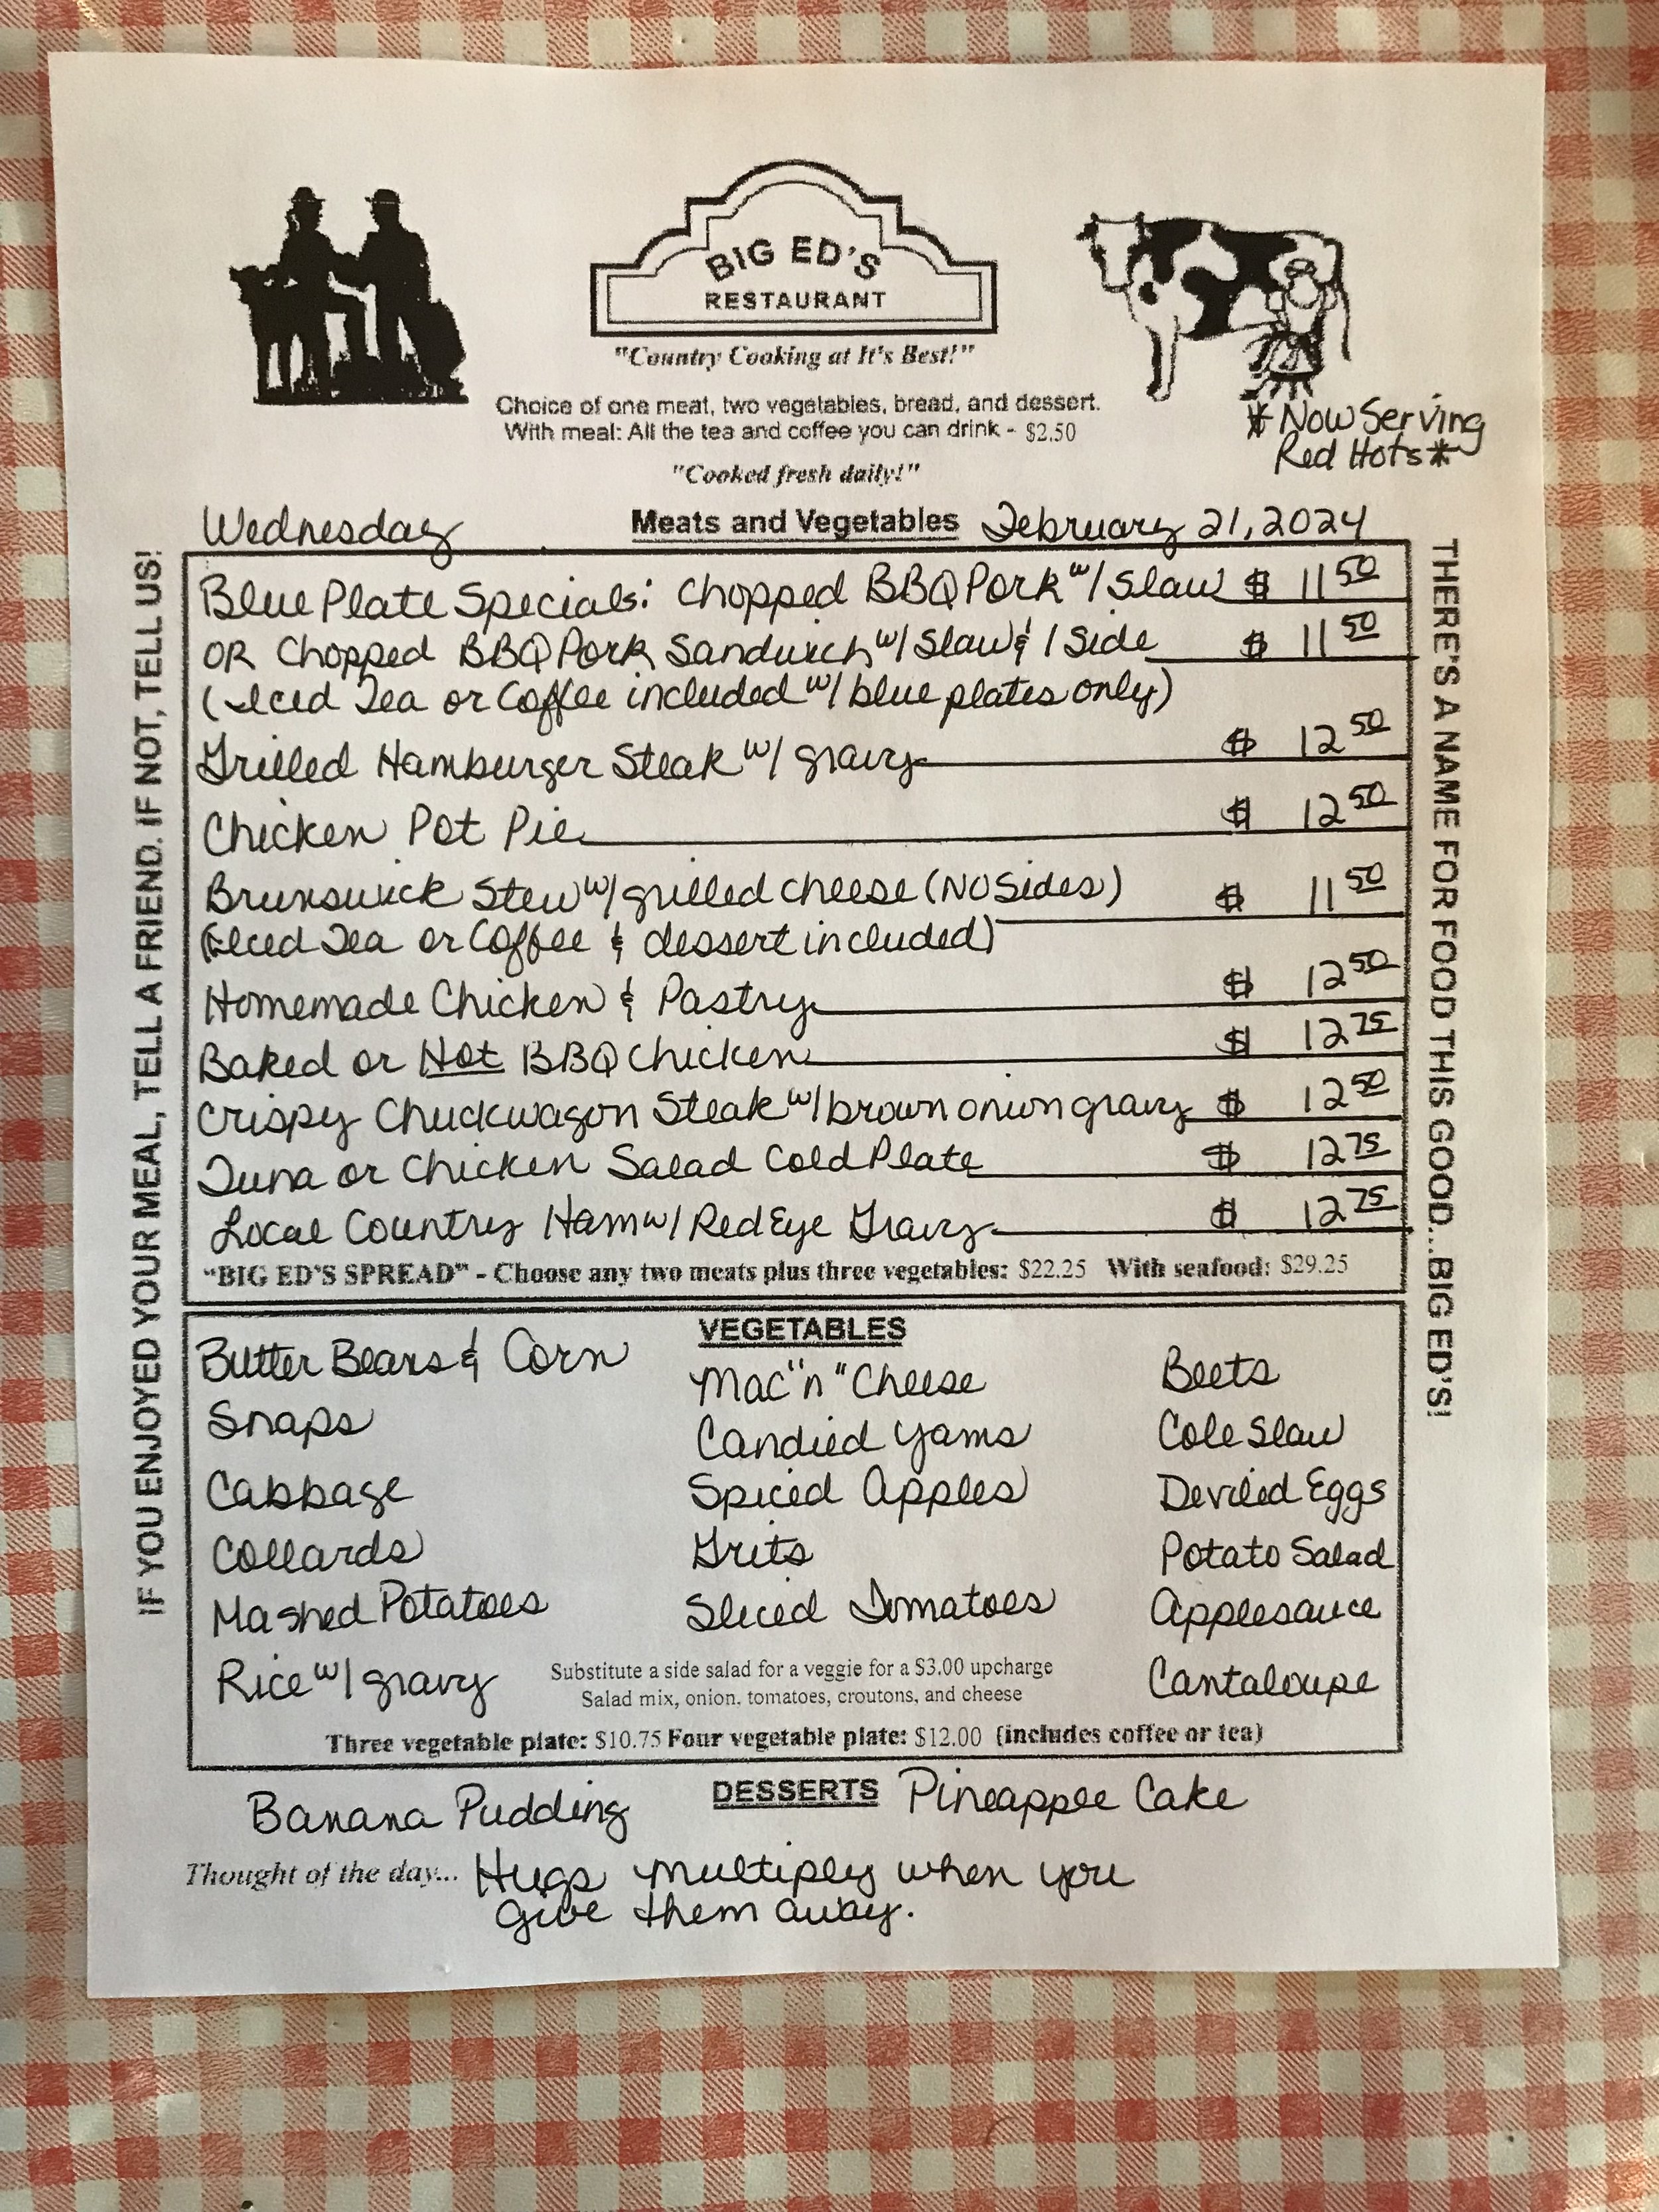 BIG ED'S
RESTAURANT
"Country Cooking at It's Best!"
Choice of one meat, two vegetables, bread, and dessert.
With meal: All the tea and coffee you can drink - $2.50
* Now Serving
Red Hots *
"Cooked fresh daily!"
Wednesday Meats and Vegetables February 21, 2024
IF YOU ENJOYED YOUR MEAL, TELL A FRIEND. IF NOT, TELL US!
Blue Plate Specials: Chopped BBQ Pork w/ Slaw $ 11 50
OR Chopped BBQ Pork Sandwich w/ Slaw & 1 Side $ 11 50
(Iced Tea or Coffee included w/ blue plates only)
Grilled Hamburger Steak w/ gravy $ 12 50
Chicken Pot Pie $ 12 50
Brunswick Stew w/ grilled cheese (NO Sides) $ 11 50
(Iced Tea or Coffee & dessert included)
Homemade Chicken & Pastry $ 12 50
Baked or Hot BBQ Chicken $ 12 75
Crispy Chuckwagon Steak w/ brown onion gravy $ 12 50
Tuna or Chicken Salad Cold Plate $ 12 75
Local Country Ham w/ Red Eye Gravy $ 12 75
"BIG ED'S SPREAD" - Choose any two meats plus three vegetables: $22.25 With seafood: $29.25
THERE'S A NAME FOR FOOD THIS GOOD...BIG ED'S!
VEGETABLES
Butter Beans & Corn Mac "n" Cheese Beets
Snaps Candied Yams Cole Slaw
Cabbage Spiced Apples Deviled Eggs
Collards Grits Potato Salad
Mashed Potatoes Sliced Tomatoes Applesauce
Rice w/ gravy Substitute a side salad for a veggie for a $3.00 upcharge Cantaloupe
Salad mix, onion, tomatoes, croutons, and cheese
Three vegetable plate: $10.75 Four vegetable plate: $12.00 (includes coffee or tea)
Banana Pudding DESSERTS Pineapple Cake
Thought of the day... Hugs multiply when you
give them away.